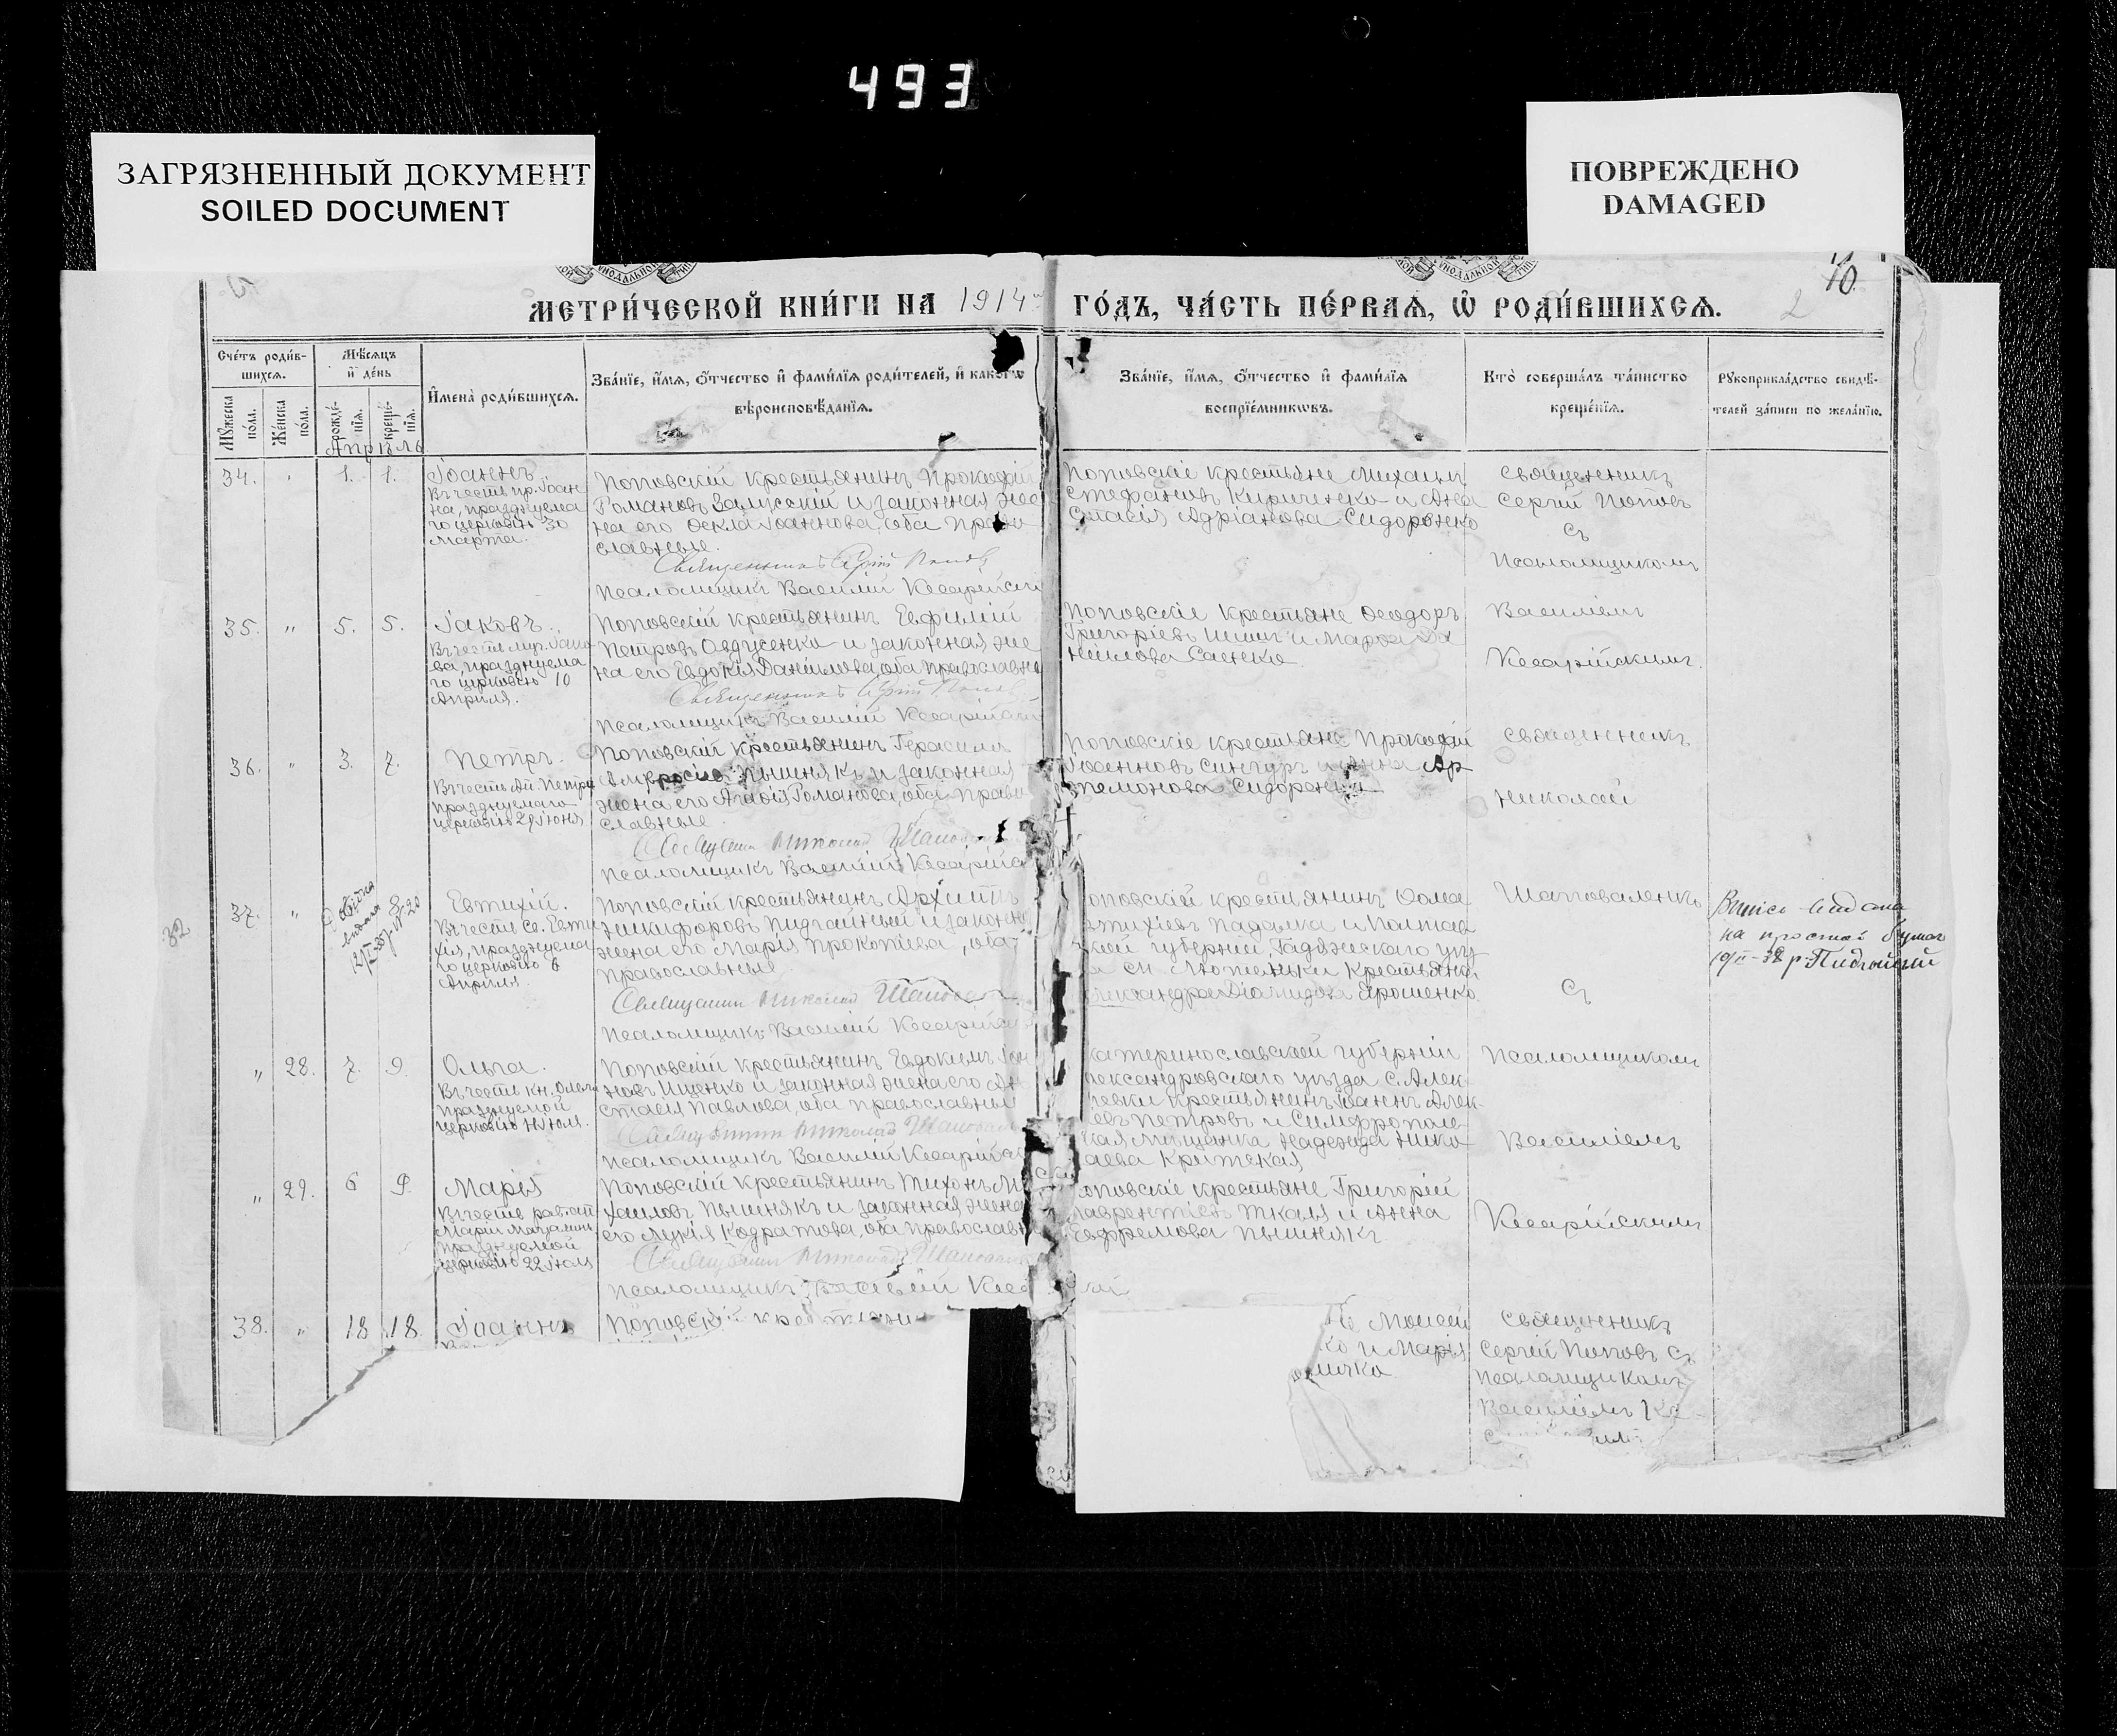 493
ЗАГРЯЗНЕННЫЙ ДОКУМЕНТ
SOILED DOCUMENT
ПОВРЕЖДЕНО
DAMAGED
МЕТРИ́ЧЕСКОЙ КНИ́ГИ НА 1914 ГО́ДЪ, ЧА́СТЬ ПЕ́РВАѦ, Ѽ РОДИ́ВШИХСѦ.
10
2
Сче́тъ роди́в-
шихсѧ.
Мѣ́сѧцъ
и҆ де́нь
И҆мена̀ роди́вшихсѧ.
Зва́нїе, и҆́мѧ, ѻ҆́тчество и҆ фами́лїѧ роди́телей, и҆ како́гѡ
вѣроисповѣ́данїѧ.
Зва́нїе, и҆́мѧ, ѻ҆́тчество и҆ фами́лїѧ
воспрїе́мникѡвъ.
Кто̀ соверша́лъ та́инство
креще́нїѧ.
Рꙋкоприкла́дство свидѣ́-
телей за́писи по жела́нїю.
Мꙋ́жеска
по́ла.
Же́нска
по́ла.
рожде́-
нїѧ.
креще́-
нїѧ.
Апрѣль
34. 1. 1. Іоаннъ.
Въ честь пр. Іоан
на, празднуема
го церковію 30
марта.
Поповскій крестьянинъ Прокофій
Романовъ Залусскій и законная же
на его Ѳекла Іоаннова, оба право
славные.
Священникъ Сергій Поповъ
Псаломщикъ Василій Кесарійскій
Поповскіе крестьяне Михаилъ
Стефановъ Кириченко и Ана
стасія Адріанова Сидоренко
Священникъ
Сергій Поповъ
съ
Псаломщикомъ
35. " 5. 5. Іаковъ.
Въ честь муч. Іако
ва, празднуема
го церковію 10
Апрѣля.
Поповскій крестьянинъ Евфимій
Петровъ Овдіенко и законная же
на его Евдокія Даніилова, оба православн
Священникъ Сергій Поповъ
Псаломщикъ Василій Кесарійскій
Поповскіе крестьяне Ѳеодоръ
Григоріевъ и Марѳа Да
ніилова Саенко
Василіемъ
Кесарійскимъ.
36. " 3. 7. Петръ.
Въ честь Ап. Петра
празднуемаго
церковію 29 Іюня
Поповскій крестьянинъ Герасимъ
Амвросіев Пышнякъ и законная
жена его Агаѳія Романова, оба право
славные.
Священникъ Николай Шаповал
Псаломщикъ Василій Кесарійс
Поповскіе крестьяне Прокофій
Іоанновъ Сингуръ и Анна Ар
темонова Сидоренко
Священникъ
Николай
32
37. " 8.
Евтихій.
Въ честь Св. Евти
хія, празднуема
го церковію 6
Апрѣля
Поповскій крестьянинъ Архиппъ
Никифоровъ Пидгайный и законн
жена его Марія Прокопіева, оба
православные.
Священникъ Николай Шаповал
Псаломщикъ Василій Кесарійск
оповскій крестьянинъ Ѳома
втихіевъ Падалка и Полтав
кой губерніи, Гадячскаго уѣз
м. Лютеньки крестьянка
лександра Діомидова Ярошенко.
Шаповаленко
съ
Випись видана
на простой бумаг
Пидгайный
" 28. 7. 9. Ольга.
Въ честь кн. Ольги
празднуемой
церковію 11 Іюля.
Поповскій крестьянинъ Евдокимъ Іоан
новъ Ищенко и законная жена его Ан
стасія Павлова, оба православные
Священникъ Николай Шаповал
Псаломщикъ Василій Кесарійс
катеринославской губерніи
лександровскаго уѣзда с. Алек
ѣевки крестьянинъ Іоаннъ Алек
евъ Петровъ и Симферополь
кая мѣщанка Надежда Нико
лаева Критская
Псаломщикомъ
Василіемъ
" 29. 6 9. Марія
Въ честь равноап
Маріи Магдалины
празднуемой
церковію 22 Іюля
Поповскій крестьянинъ Тихонъ Ми
хаиловъ Пышнякъ и законная жена
его Лукія Кодратова, оба православн
Священникъ Николай Шаповал
Псаломщикъ Василій Кеса
оповскіе крестьяне Григорій
Лаврентіевъ Ткаля и Анна
Евфремова Пышнякъ
Кесарійскимъ
38. " 18 18. Іоаннъ
Поповскій крестьянин
Моисей
ко и Марія
личко
Священникъ
Сергій Поповъ съ
псаломщикомъ
Василіемъ Ке